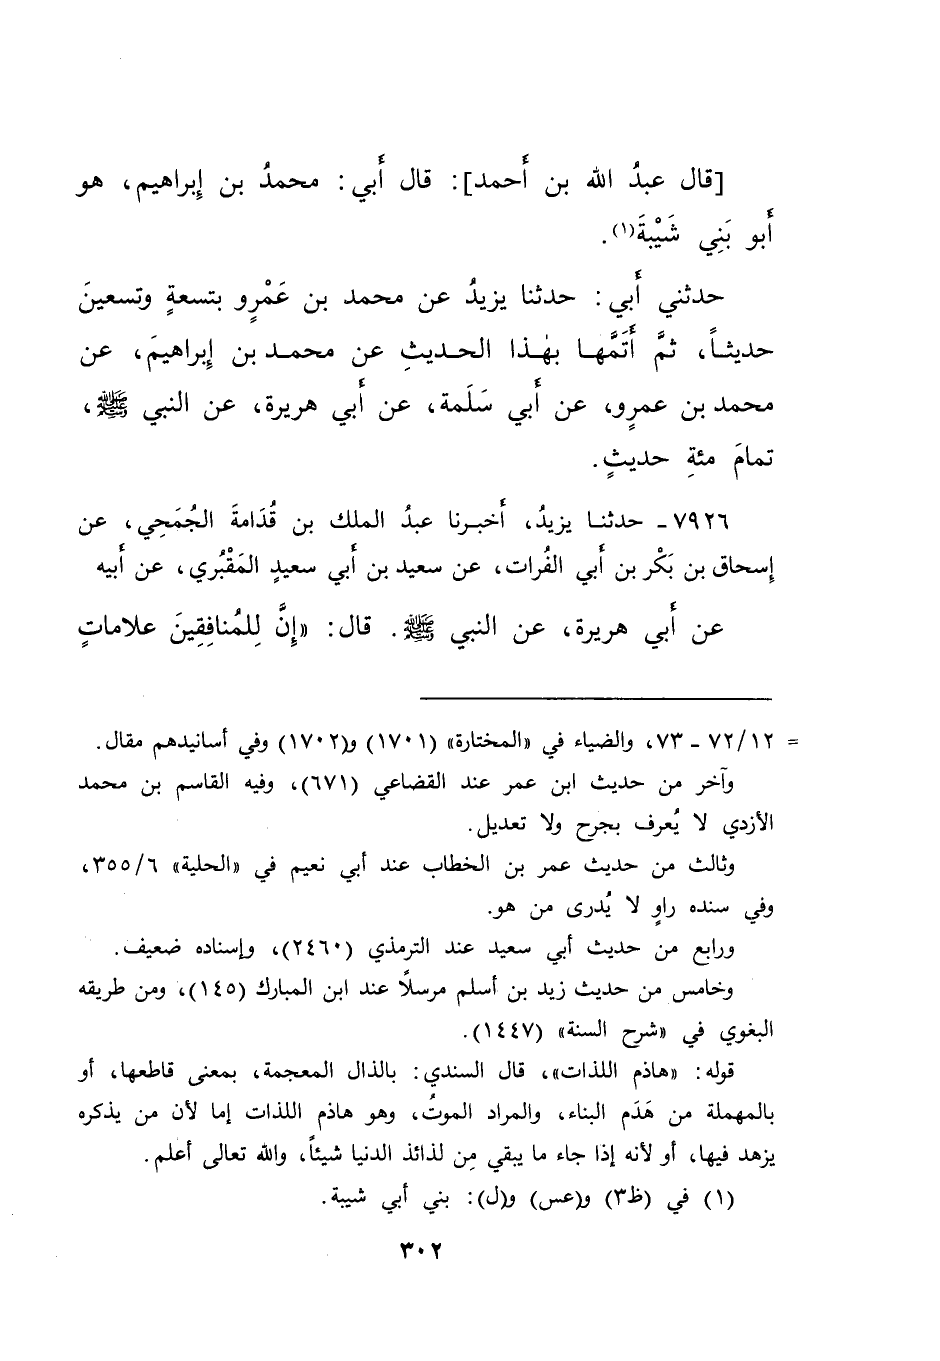 [قال عبدُ الله بن أَحمد]: قال أَبي: محمدُ بن إِبراهيم، هو
أَبو بَنِي شَيْبةَ(١).
حدثني أَبي: حدثنا يزيدُ عن محمد بن عَمْرٍو بتسعةٍ وتسعينَ
حديثاً، ثمَّ أَتَمَّها بهٰذا الحديثِ عن محمد بن إِبراهيمَ، عن
محمد بن عمرٍو، عن أَبي سَلَمة، عن أَبي هريرة، عن النبي ﷺ،
تمامَ مئةِ حديثٍ.
٧٩٢٦ـ حدثنا يزيدُ، أَخبرنا عبدُ الملك بن قُدَامةَ الجُمَحِي، عن
إِسحاق بن بَكْر بن أَبي الفُرات، عن سعيد بن أَبي سعيدٍ المَقْبُري، عن أَبيه
عن أَبي هريرة، عن النبي ﷺ. قال: «إِنَّ لِلمُنافِقِينَ علاماتٍ
= ٧٢/١٢ ـ ٧٣، والضياء في «المختارة» (١٧٠١) و(١٧٠٢) وفي أسانيدهم مقال.
وآخر من حديث ابن عمر عند القضاعي (٦٧١)، وفيه القاسم بن محمد
الأزدي لا يُعرف بجرح ولا تعديل.
وثالث من حديث عمر بن الخطاب عند أبي نعيم في «الحلية» ٣٥٥/٦،
وفي سنده راوٍ لا يُدرى من هو.
ورابع من حديث أبي سعيد عند الترمذي (٢٤٦٠)، وإسناده ضعيف.
وخامس من حديث زيد بن أسلم مرسلاً عند ابن المبارك (١٤٥)، ومن طريقه
البغوي في «شرح السنة» (١٤٤٧).
قوله: «هاذم اللذات»، قال السندي: بالذال المعجمة، بمعنى قاطعها، أو
بالمهملة من هَدَم البناء، والمراد الموتُ، وهو هاذم اللذات إما لأن من يذكره
يزهد فيها، أو لأنه إذا جاء ما يبقي مِن لذائذ الدنيا شيئاً، والله تعالى أعلم.
(١) في (ظ٣) و(عس) و(ل): بني أبي شيبة.
٣٠٢